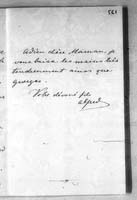 561
Adieu chère Maman, je
vous baise les mains très
tendrement ainsi que
Georges.
Votre dévoué fils
Alfred